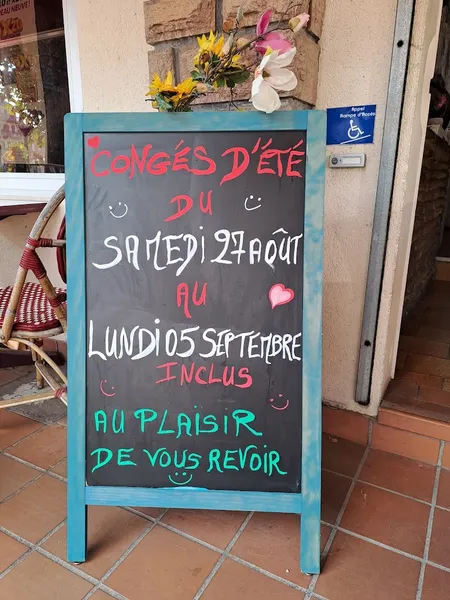 CONGÉS D'ÉTÉ
DU
SAMEDI 27 AOÛT
AU
LUNDI 05 SEPTEMBRE
INCLUS
AU PLAISIR
DE VOUS REVOIR
Appel
Rampe d'Accès